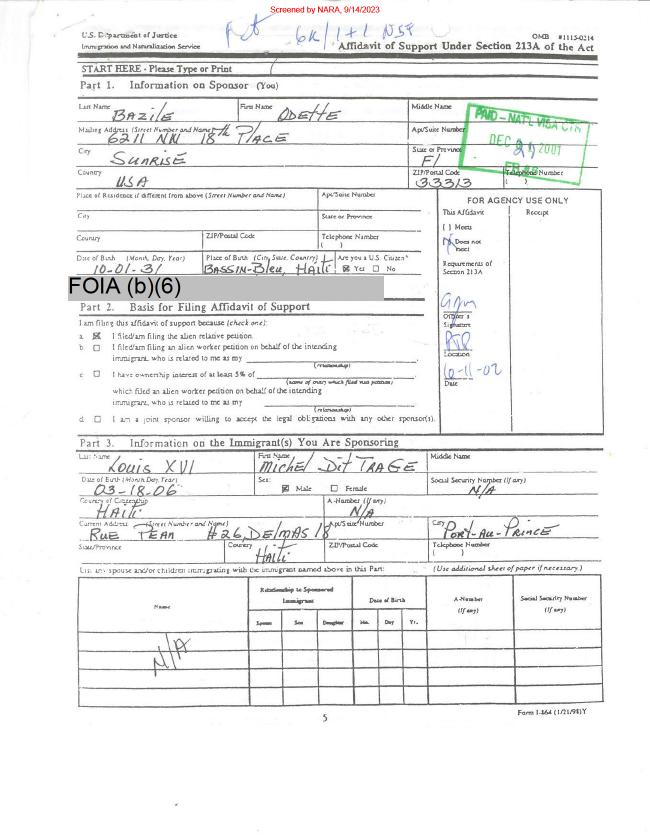 Screened by NARA, 9/14/2023
6K/1+1 NSF
U.S. Department of Justice
Immigration and Naturalization Service
OMB #1115-0214
Affidavit of Support Under Section 213A of the Act
START HERE - Please Type or Print
Part 1. Information on Sponsor (You)
Last Name First Name Middle Name
BAZILE ODETTE
Mailing Address (Street Number and Name) Apt/Suite Number
6211 NW 18th PLACE
City State or Province
SUNRISE Fl
Country ZIP/Postal Code Telephone Number
USA 33313 ( )
PAID - NAT'L VISA CTR
DEC 2001
Place of Residence if different from above (Street Number and Name) Apt/Suite Number
City State or Province
Country ZIP/Postal Code Telephone Number
( )
Date of Birth (Month, Day, Year) Place of Birth (City, State, Country) Are you a U.S. Citizen?
10-01-31 BASSIN-Bleu, HAITI ☒ Yes ☐ No
FOIA (b)(6)
FOR AGENCY USE ONLY
This Affidavit Receipt
[ ] Meets
[X] Does not meet
Requirements of
Section 213A
Officer's
Signature
Location
6-11-02
Date
Part 2. Basis for Filing Affidavit of Support
I am filing this affidavit of support because (check one):
a. ☒ I filed/am filing the alien relative petition.
b. ☐ I filed/am filing an alien worker petition on behalf of the intending
immigrant, who is related to me as my .
(relationship)
c. ☐ I have ownership interest of at least 5% of
(name of entity which filed visa petition)
which filed an alien worker petition on behalf of the intending
immigrant, who is related to me as my .
(relationship)
d. ☐ I am a joint sponsor willing to accept the legal obligations with any other sponsor(s).
Part 3. Information on the Immigrant(s) You Are Sponsoring
Last Name First Name Middle Name
Louis XVI MICHEL DIT TRAGE
Date of Birth (Month, Day, Year) Sex: Social Security Number (If any)
03-18-06 ☒ Male ☐ Female N/A
Country of Citizenship A-Number (If any)
HAITI N/A
Current Address (Street Number and Name) Apt/Suite Number City
RUE #26, DElMAS 18 PORT-AU-PRINCE
State/Province Country ZIP/Postal Code Telephone Number
HAITI ( )
List any spouse and/or children immigrating with the immigrant named above in this Part: (Use additional sheet of paper if necessary.)
Name Relationship to Sponsored Immigrant Date of Birth A-Number (If any) Social Security Number (If any)
Spouse Son Daughter Mo. Day Yr.
N/A
5
Form I-864 (1/21/98)Y